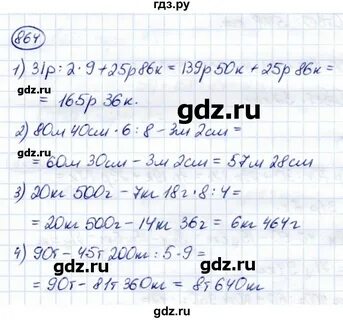 гдз.ру
864
1) 31р : 2 · 9 + 25р 86к = 139р 50к + 25р 86к =
= 165р 36к.
gdz.ru
gdz.ru
2) 80м 40см · 6 : 8 - 3м 2см =
= 60м 30см - 3м 2см = 57м 28см
gdz.ru
3) 20кг 500г - 7кг 18г · 8 : 4 =
= 20кг 500г - 14кг 36г = 6кг 464г
gdz.ru
gdz.ru
4) 90т - 45т 200кг : 5 · 9 =
= 90т - 81т 360кг = 8т 640кг
gdz.ru